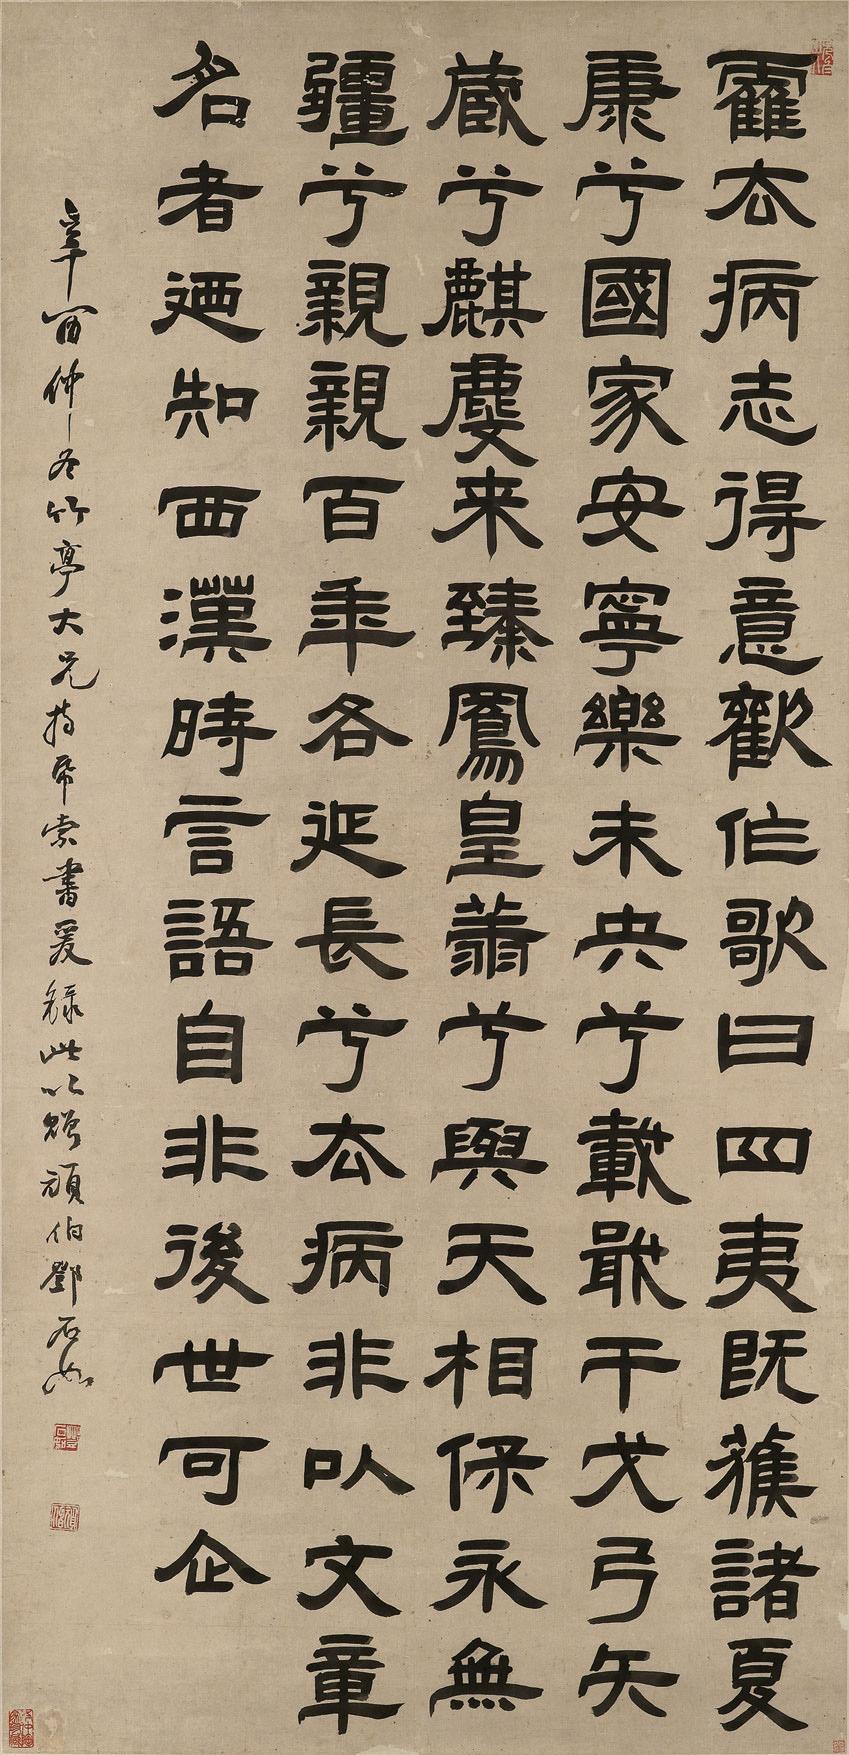 霍去病志得意歡作歌曰四夷既護諸夏
康兮國家安寧樂未央兮載戢干戈弓矢
藏兮麒麐来臻鳳皇翔兮與天相保永無
疆兮親親百年各延長兮去病非以文章
名者迺知西漢時言語自非後世可企
辛酉仲冬竹亭大兄持帋索書爰錄此以贈頑伯鄧石如